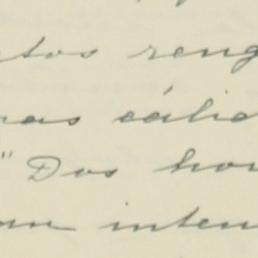 tos reng
nas cálid
" Dos hom
inten